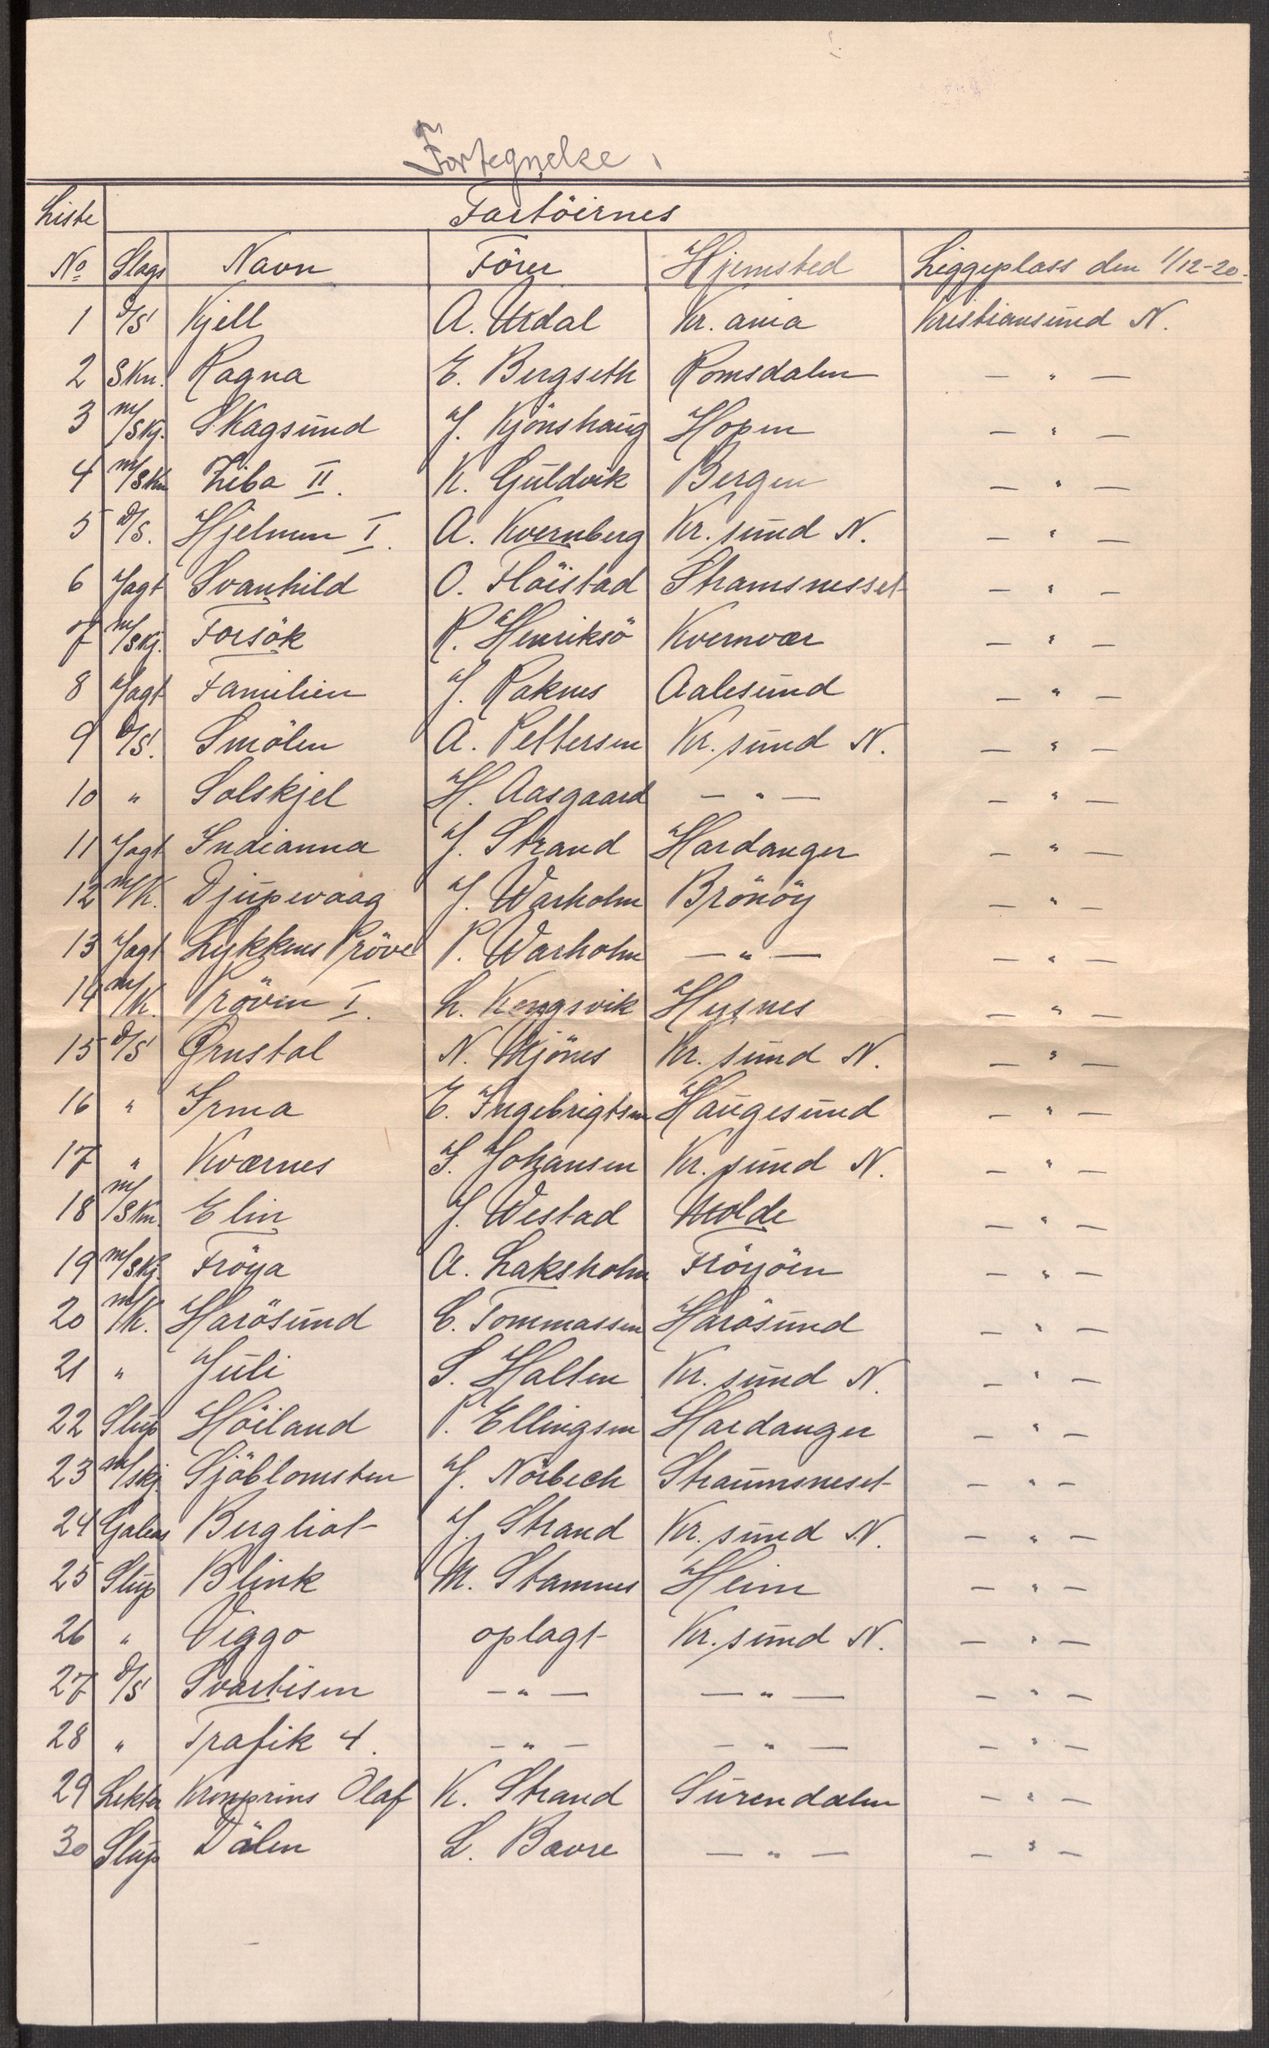 Fortegnelse.
Liste Fartöirnes
No Slags Navn Förer Hjemsted Liggeplass den 1/12-20.
1 D/S Kjell A. Urdal Kr. ania Kristiansund N.
2 Skn. Ragna E. Bergseth Romsdalen — " —
3 m/Skj. Skagsund J. Kjönshaug Hopen — " —
4 m/Skn Ziba II. K. Guldvik Bergen — " —
5 D/S. Hjelmen I. A. Kvernberg Kr. sund N. — " —
6 Jagt Svanhild O. Flöistad Stramsnesset — " —
7 m/Skj. Forsök R. Henriksö Kvernvær — " —
8 Jagt Familien J. Raknes Aalesund — " —
9 D/S. Smölen A. Pettersen Kr. sund N. — " —
10 " Solskjel H. Aasgaard — " — — " —
11 Jagt Indianna J. Strand Hardanger — " —
12 m/K. Djupevaag J. Warholm Brönöy — " —
13 Jagt Lykkens Pröve P. Warholm — " — — " —
14 m/K. Pröven I. L. Kongsvik Husnes — " —
15 D/S Ørnstal N. Mjönes Kr. sund N. — " —
16 " Irma E. Ingebrigtsen Haugesund — " —
17 " Kværnes S. Johansen Kr. sund N. — " —
18 m/Skn. Elin J. Westad Molde — " —
19 m/Skj. Fröya A. Laksholm Fröyöen — " —
20 m/K. Harösund C. Tommassen Harösund — " —
21 " Juli S. Halten Kr. sund N. — " —
22 Slup Höiland P. Ellingsen Hardanger — " —
23 m/skj Sjöblomsten J. Nörbech Straumsneset — " —
24 Galeas Bergliot J. Strand Kr. sund N. — " —
25 Slup Blink M. Stamnes Heim — " —
26 " Viggo oplagt Kr. sund N. — " —
27 D/S Svartisen — " — — " — — " —
28 " Trafik 4. — " — — " — — " —
29 Lekter Kronprins Olaf K. Strand Surendalen — " —
30 Slup Dälen L. Bævre — " — — " —